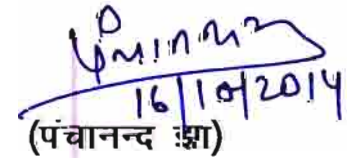 16/10/2014
(पंचानन्द झा)